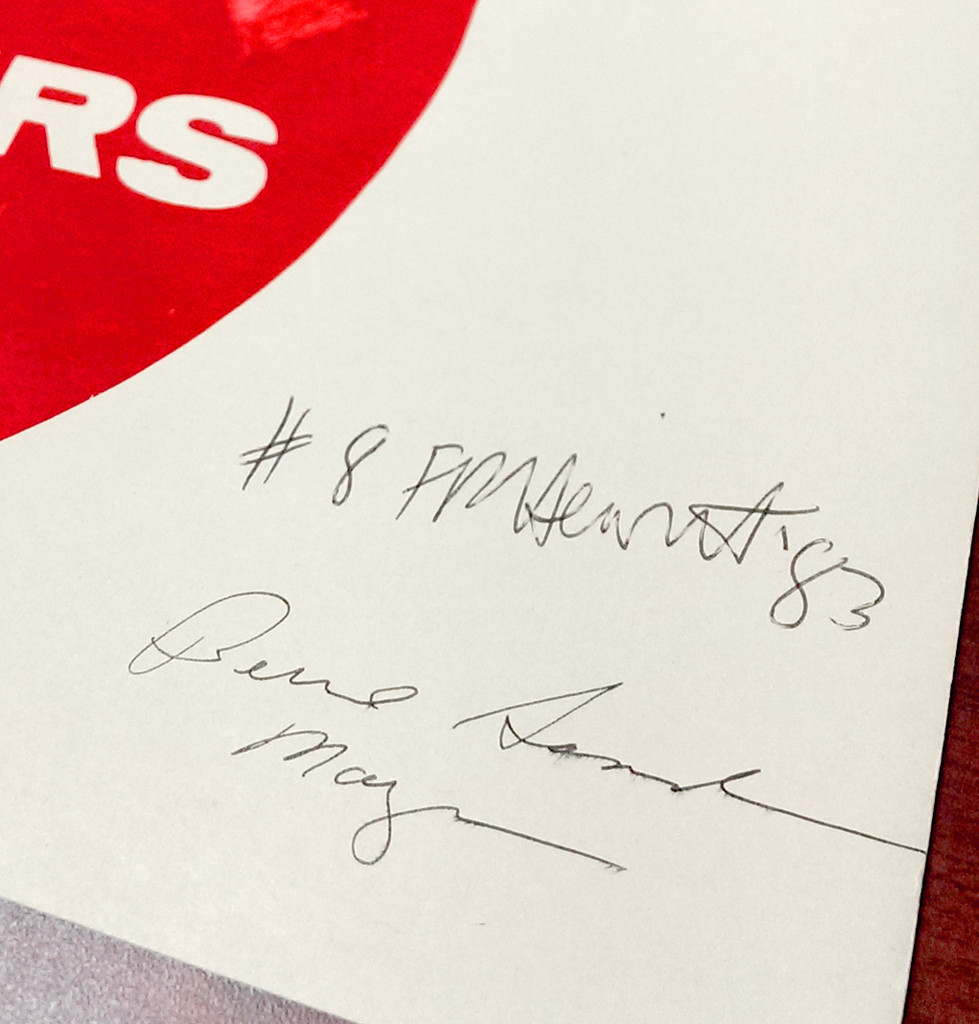 RS
# 8 FM Hewitt '83
Bernie Sanders
Mayor